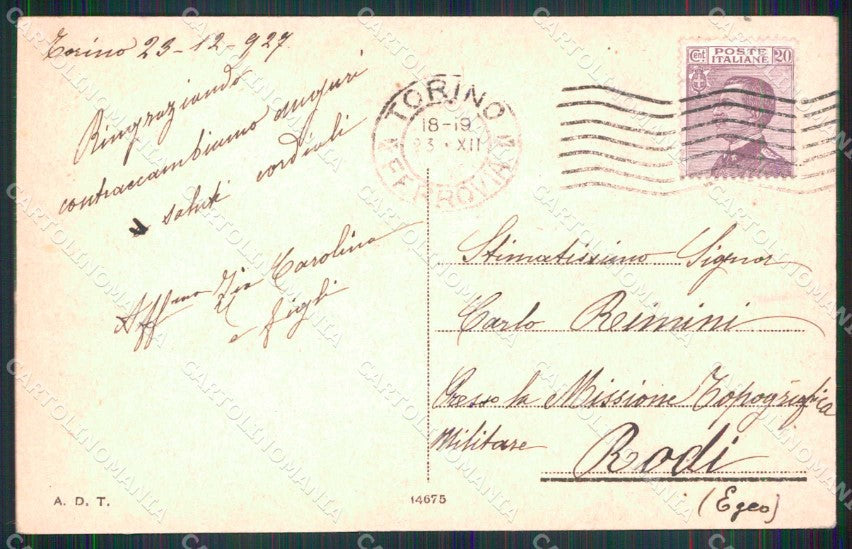 Torino 23-12-927.
Ringraziando
contraccambiamo auguri
e saluti cordiali
Aff.ma Zia Carolina
e figli
TORINO
18-19
23 · XII
FERROVIA
POSTE
ITALIANE
Cent
20
Stimatissimo Signor
Carlo Rimini
Presso la Missione Topografica
Militare
Rodi
(Egeo)
A. D. T.
14675
CARTOLINOMANIA